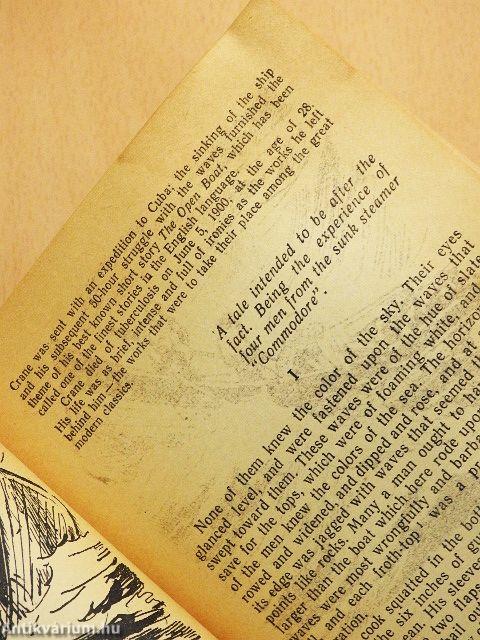 Crane was sent with an expedition to Cuba; the sinking of the ship
and his subsequent 50-hour struggle with the waves furnished the
theme of his best known short story The Open Boat, which has been
called one of the finest stories in the English language.
Crane died of tuberculosis on June 5, 1900, at the age of 28.
His life was as brief, intense and full of ironies as the works he left
behind him — the works that were to take their place among the great
modern classics.
A tale intended to be after the
fact. Being the experience of
four men from the sunk steamer
"Commodore".
I
None of them knew the color of the sky. Their eyes
glanced level, and were fastened upon the waves that
swept toward them. These waves were of the hue of slate,
save for the tops, which were of foaming white, and
of the men knew the colors of the sea. The horizo
rowed and widened, and dipped and rose, and at a
its edge was jagged with waves that seemed
points like rocks. Many a man ought to ha
larger than the boat which here rode upon
waves were most wrongfully and barba
and each froth-top was a p
tion.
ook squatted in the bo
six inches of
an. His sleeve
two flaps
out of
Antikvárium.hu